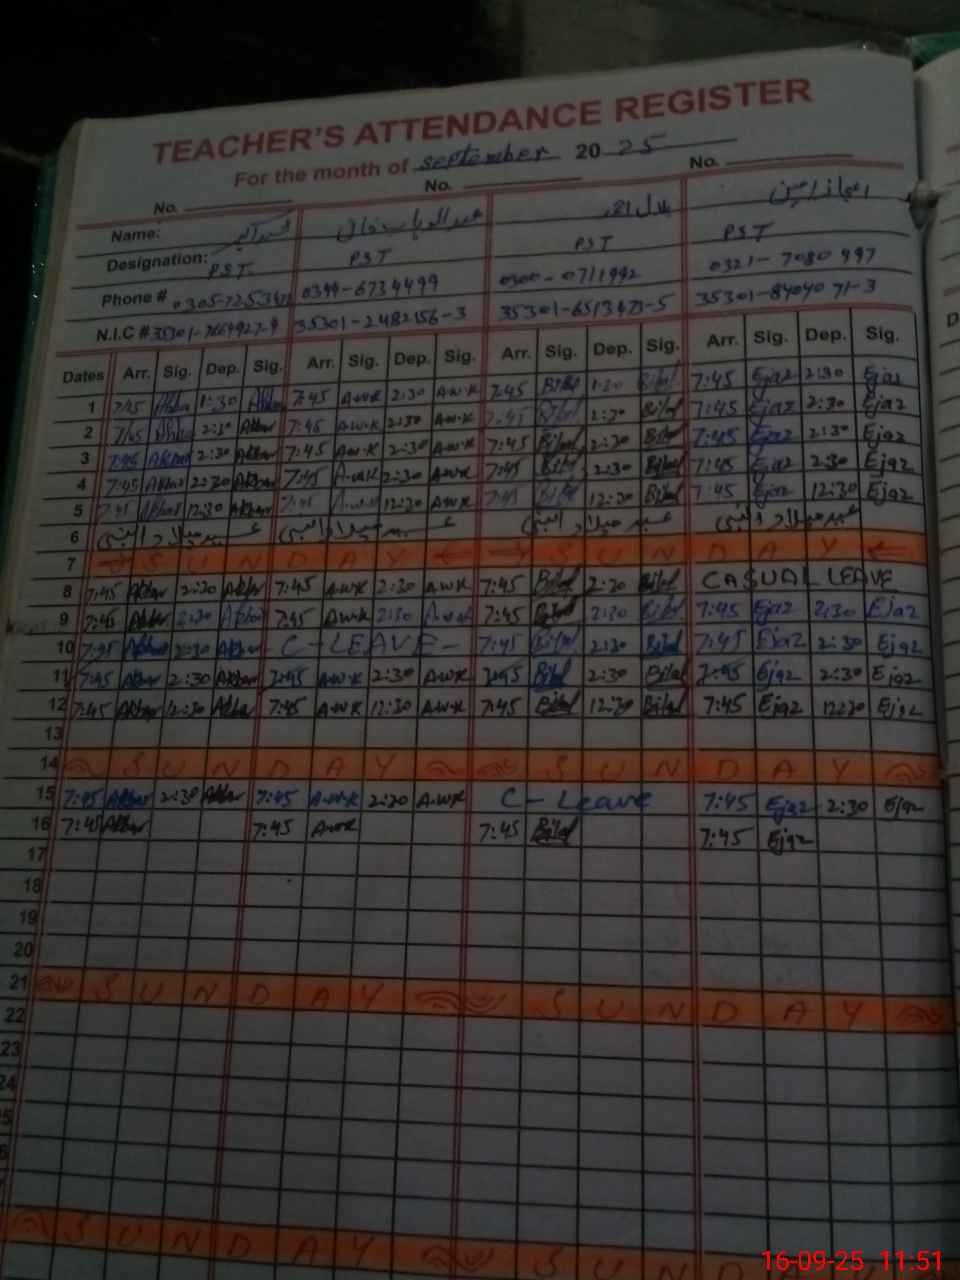 TEACHER'S ATTENDANCE REGISTER
For the month of September 2025
No. No. No.
Name: عبدالوہاب خان بلال احمد اعجاز امین
Designation: PST PST PST PST
Phone # 0344-6734499 0300-0711992 0321-7080997
N.I.C # 35301-2482156-3 35301-6513473-5 35301-8404071-3
Dates Arr. Sig. Dep. Sig. Arr. Sig. Dep. Sig. Arr. Sig. Dep. Sig. Arr. Sig. Dep. Sig.
1 7:45 Akbar 1:30 Akbar 7:45 A.W.K 2:30 A.W.K 7:45 Bilal 1:30 Bilal 7:45 Ejaz 2:30 Ejaz
2 7:45 Akbar 2:30 Akbar 7:45 A.W.K 2:30 A.W.K 7:45 Bilal 2:30 Bilal 7:45 Ejaz 2:30 Ejaz
3 7:45 Akbar 2:30 Akbar 7:45 A.W.K 2:30 A.W.K 7:45 Bilal 2:30 Bilal 7:45 Ejaz 2:30 Ejaz
4 7:45 Akbar 2:30 Akbar 7:45 A.W.K 2:30 A.W.K 7:45 Bilal 2:30 Bilal 7:45 Ejaz 2:30 Ejaz
5 7:45 Akbar 12:30 Akbar 7:45 A.W.K 12:30 A.W.K 7:45 Bilal 12:30 Bilal 7:45 Ejaz 12:30 Ejaz
6 عید میلاد النبی عید میلاد النبی عید میلاد النبی عید میلاد النبی
7 SUNDAY SUNDAY
8 7:45 Akbar 2:30 Akbar 7:45 A.W.K 2:30 A.W.K 7:45 Bilal 2:30 Bilal CASUAL LEAVE
9 7:45 Akbar 2:30 Akbar 7:45 A.W.K 2:30 A.W.K 7:45 Bilal 2:30 Bilal 7:45 Ejaz 2:30 Ejaz
10 7:45 Akbar 2:30 Akbar C-LEAVE- 7:45 Bilal 2:30 Bilal 7:45 Ejaz 2:30 Ejaz
11 7:45 Akbar 2:30 Akbar 7:45 A.W.K 2:30 A.W.K 7:45 Bilal 2:30 Bilal 7:45 Ejaz 2:30 Ejaz
12 7:45 Akbar 12:30 Akbar 7:45 A.W.K 12:30 A.W.K 7:45 Bilal 12:30 Bilal 7:45 Ejaz 12:30 Ejaz
13
14 SUNDAY SUNDAY
15 7:45 Akbar 2:30 Akbar 7:45 A.W.K 2:30 A.W.K C-Leave 7:45 Ejaz 2:30 Ejaz
16 7:45 Akbar 7:45 A.W.K 7:45 Bilal 7:45 Ejaz
17
18
19
20
21 SUNDAY SUNDAY
22
23
24
SUNDAY SUND
16-09-25 11:51